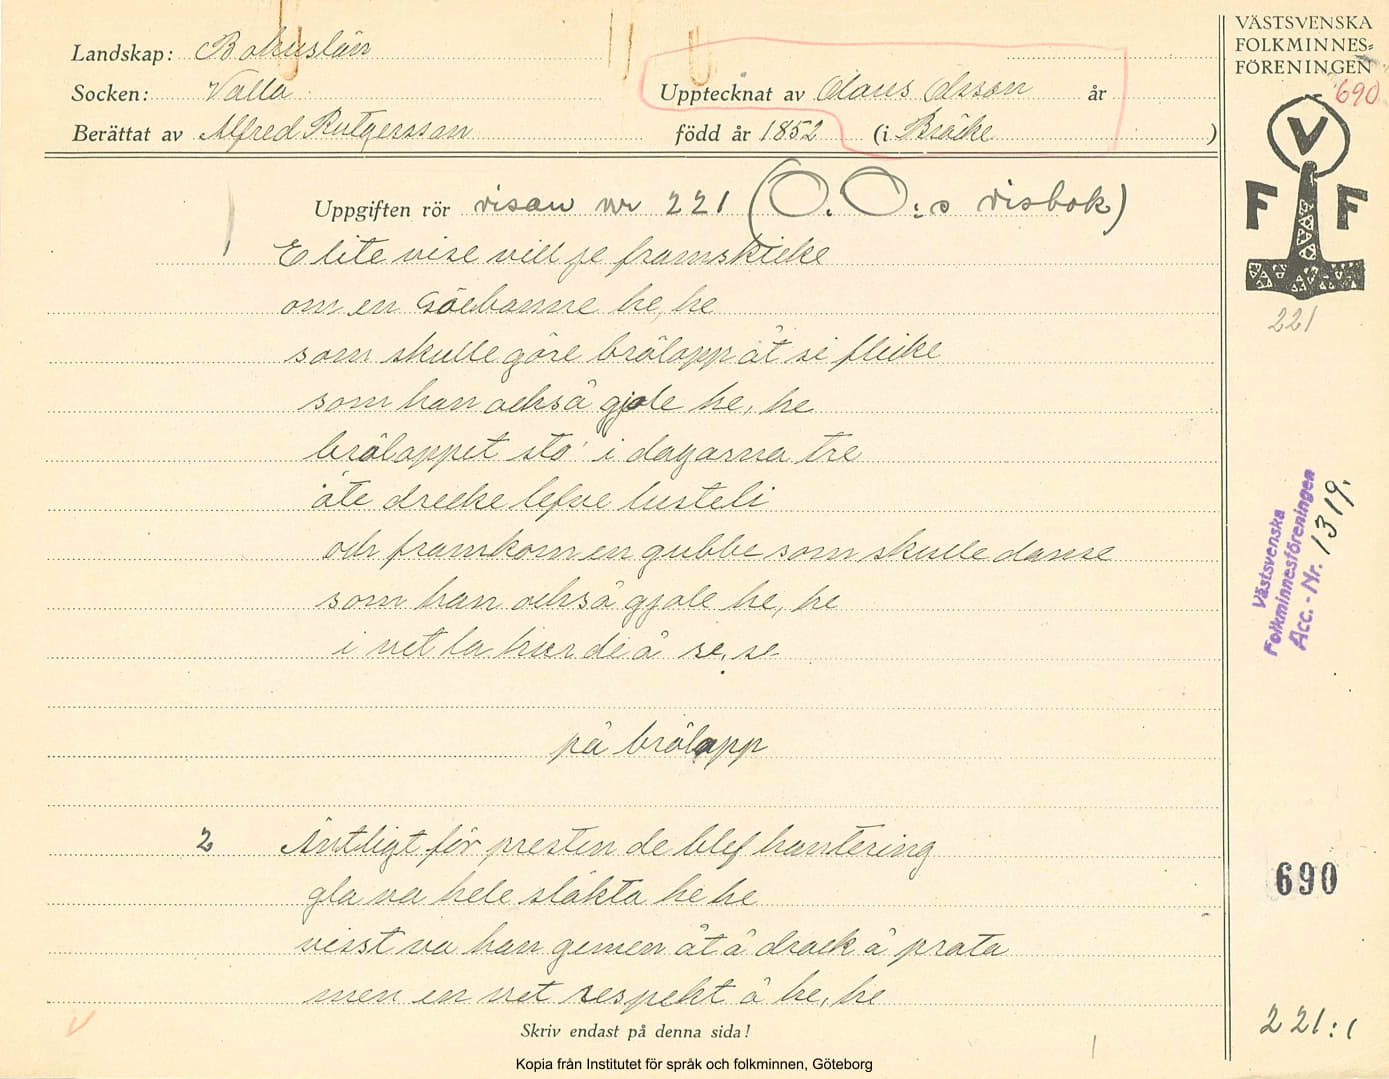 Landskap: Bohuslän
Socken: Valla
Berättat av Alfred Rutgersson
Upptecknat av Olaus Olsson år
född år 1852 (i Bräcke )
VÄSTSVENSKA
FOLKMINNES-
FÖRENINGEN
690
V
F F
221
Uppgiften rör visan nr 221 (O. O:s visbok)
1 E lite vise vill je framskicke
om en Göebonne he, he
som skulle göre brölopp åt si flicke
som han också gjole he, he
bröloppet sto i dagarna tre
åte drecke lefve lusteli
och framkom en gubbe som skulle danse
som han också gjole he, he
i vet la hur de å se, se
på brölopp
2 Äntligt för presten de blef hantering
gla va hele släkta he he
visst va han gemen åt å drack å prata
men en vet respekt å he, he
Västsvenska
Folkminnesföreningen
Acc.-Nr. 1319.
690
221:1
Skriv endast på denna sida!
Kopia från Institutet för språk och folkminnen, Göteborg